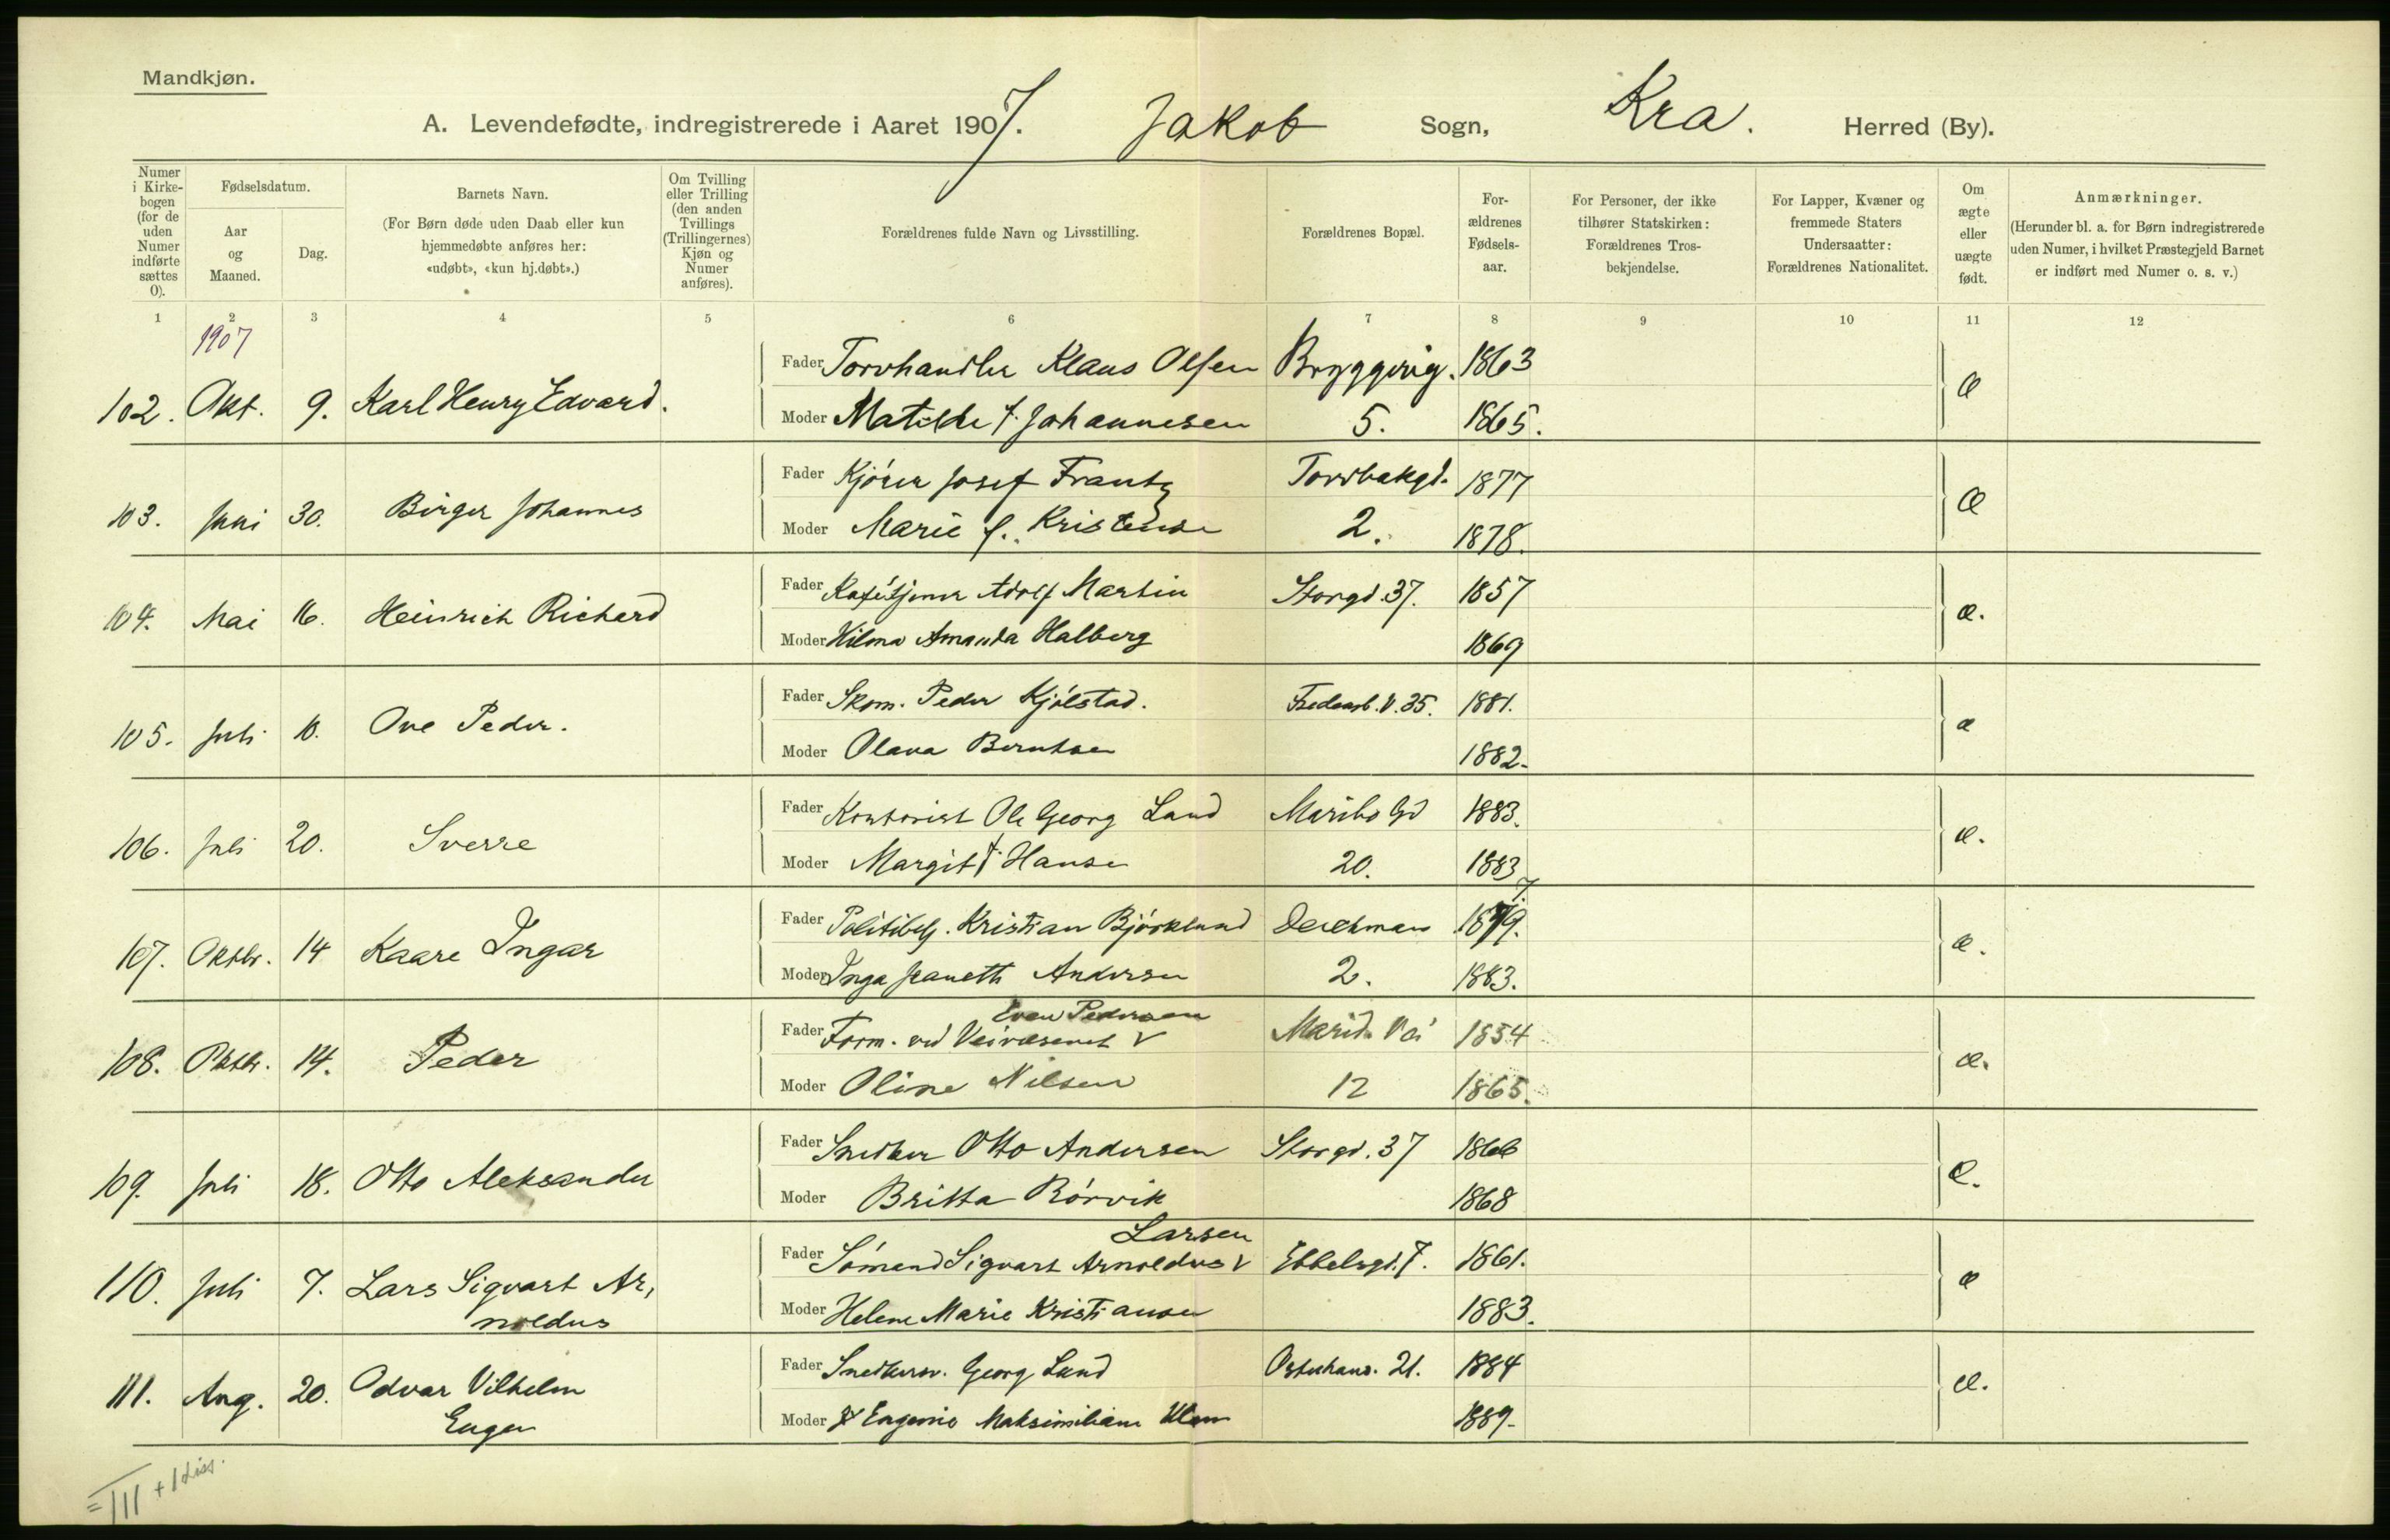 Mandkjøn.
A. Levendefødte, indregistrerede i Aaret 1907. Jakob Sogn, Kra. Herred (By).
Numer i Kirkebogen (for de uden Numer indførte sættes 0).
Fødselsdatum.
Aar og Maaned.
Dag.
Barnets Navn.
(For Børn døde uden Daab eller kun hjemmedøbte anføres her: «udøbt», «kun hj.døbt».)
Om Tvilling eller Trilling (den anden Tvillings (Trillingernes) Kjøn og Numer anføres).
Forældrenes fulde Navn og Livsstilling.
Forældrenes Bopæl.
For-ældrenes Fødsels-aar.
For Personer, der ikke tilhører Statskirken: Forældrenes Tros-bekjendelse.
For Lapper, Kvæner og fremmede Staters Undersaatter: Forældrenes Nationalitet.
Om ægte eller uægte født.
Anmærkninger.
(Herunder bl. a. for Børn indregistrerede uden Numer, i hvilket Præstegjeld Barnet er indført med Numer o. s. v.)
1 2 3 4 5 6 7 8 9 10 11 12
1907
Fader Torvhandler Klaus Olsen Bryggerig. 1863
102. Okt. 9. Karl Henry Edvard. Æ
Moder Matilde f. Johannesen 5. 1865.
Fader Kjører Josef Frantz Torvbakgd. 1877
103. Juni 30. Birger Johannes Æ
Moder Marie f. Kristense 2. 1878.
Fader Adolf Martin Storgd. 37. 1857
104. Mai 16. Heinrich Richard æ.
Moder Hilma Amanda Halberg 1869
Fader Skom. Peder Kjølstad. Fredensb. V. 35. 1881.
105. Juli 10. Ove Peder. æ
Moder Olava Berntsen 1882.
Fader Kontorist Ole Georg Land Maribo Gd 1883.
106. Juli 20. Sverre æ.
Moder Margit f. Hansen 20. 1883
Fader Politibetj. Kristian Bjørklund Deichmans 1879.
107. Oktbr. 14 Kaare Ingar æ.
Moder Inga Jeanette Andersen 2. 1883.
Even Pedersen
Fader Form. ved Veivæsenet V Marid. Vei 1854
108. Oktbr. 14. Peder æ.
Moder Oline Nilsen 12 1865.
Fader Snedker Otto Andersen Storgd. 37 1866
109. Juli 18. Otto Aleksander Æ.
Moder Britta Rørvik 1868
Larsen
Fader Sømand Sigvart Arnoldus V Ebbelsgd. 7. 1861.
110. Juli 7. Lars Sigvart Ar, æ
noldus
Moder Helene Marie Kristiansen 1883.
Fader Snedkersv. Georg Lund Osterhaus. 21. 1884
111. Aug. 20. Odvar Vilhelm æ.
Eugen
Moder Eugenie Maksimiliane 1889.
= 111 + 1 diss.